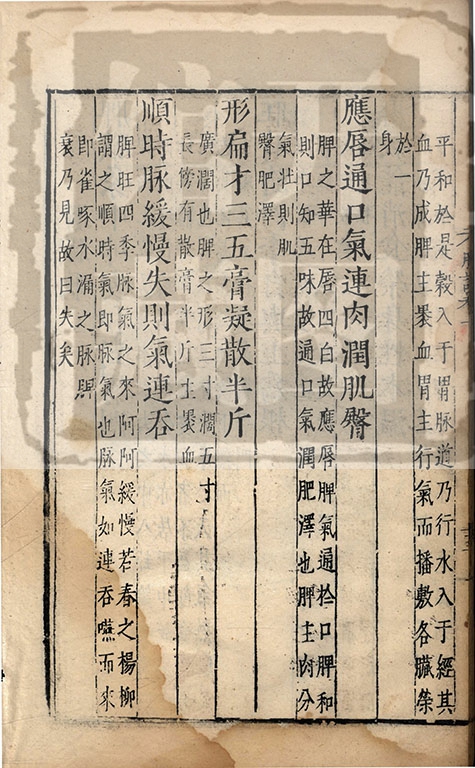 平和於是穀入于胃脉道乃行水入于經其
血乃成脾主褁血胃主行氣而播敷各臟榮
於一
身
應唇通口氣連肉潤肌臀
脾之華在唇四白故應唇脾氣通於口脾和
則口知五味故通口氣潤肥澤也脾主肉分
氣壯則肌
臀肥澤
形扁才三五膏凝散半斤
廣濶也脾之形三寸濶五寸
長傍有散膏半斤主褁血
順時脉緩慢失則氣連吞
脾旺四季脉氣之來阿阿緩慢若春之楊柳
謂之順時氣即脉氣也脉氣如連吞嚥而來
即雀啄水漏之脉脾
衰乃見故曰失矣